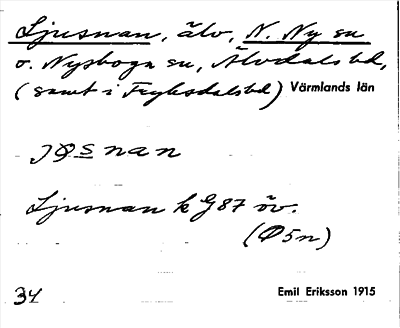 Ljusnan, älv, N. Ny sn
o. Nyskoga sn, Älvdals hd,
(samt i Fryksdals hd) Värmlands län
jɸsnan
Ljusnan k G87 öv.
(Φ5n)
34
Emil Eriksson 1915